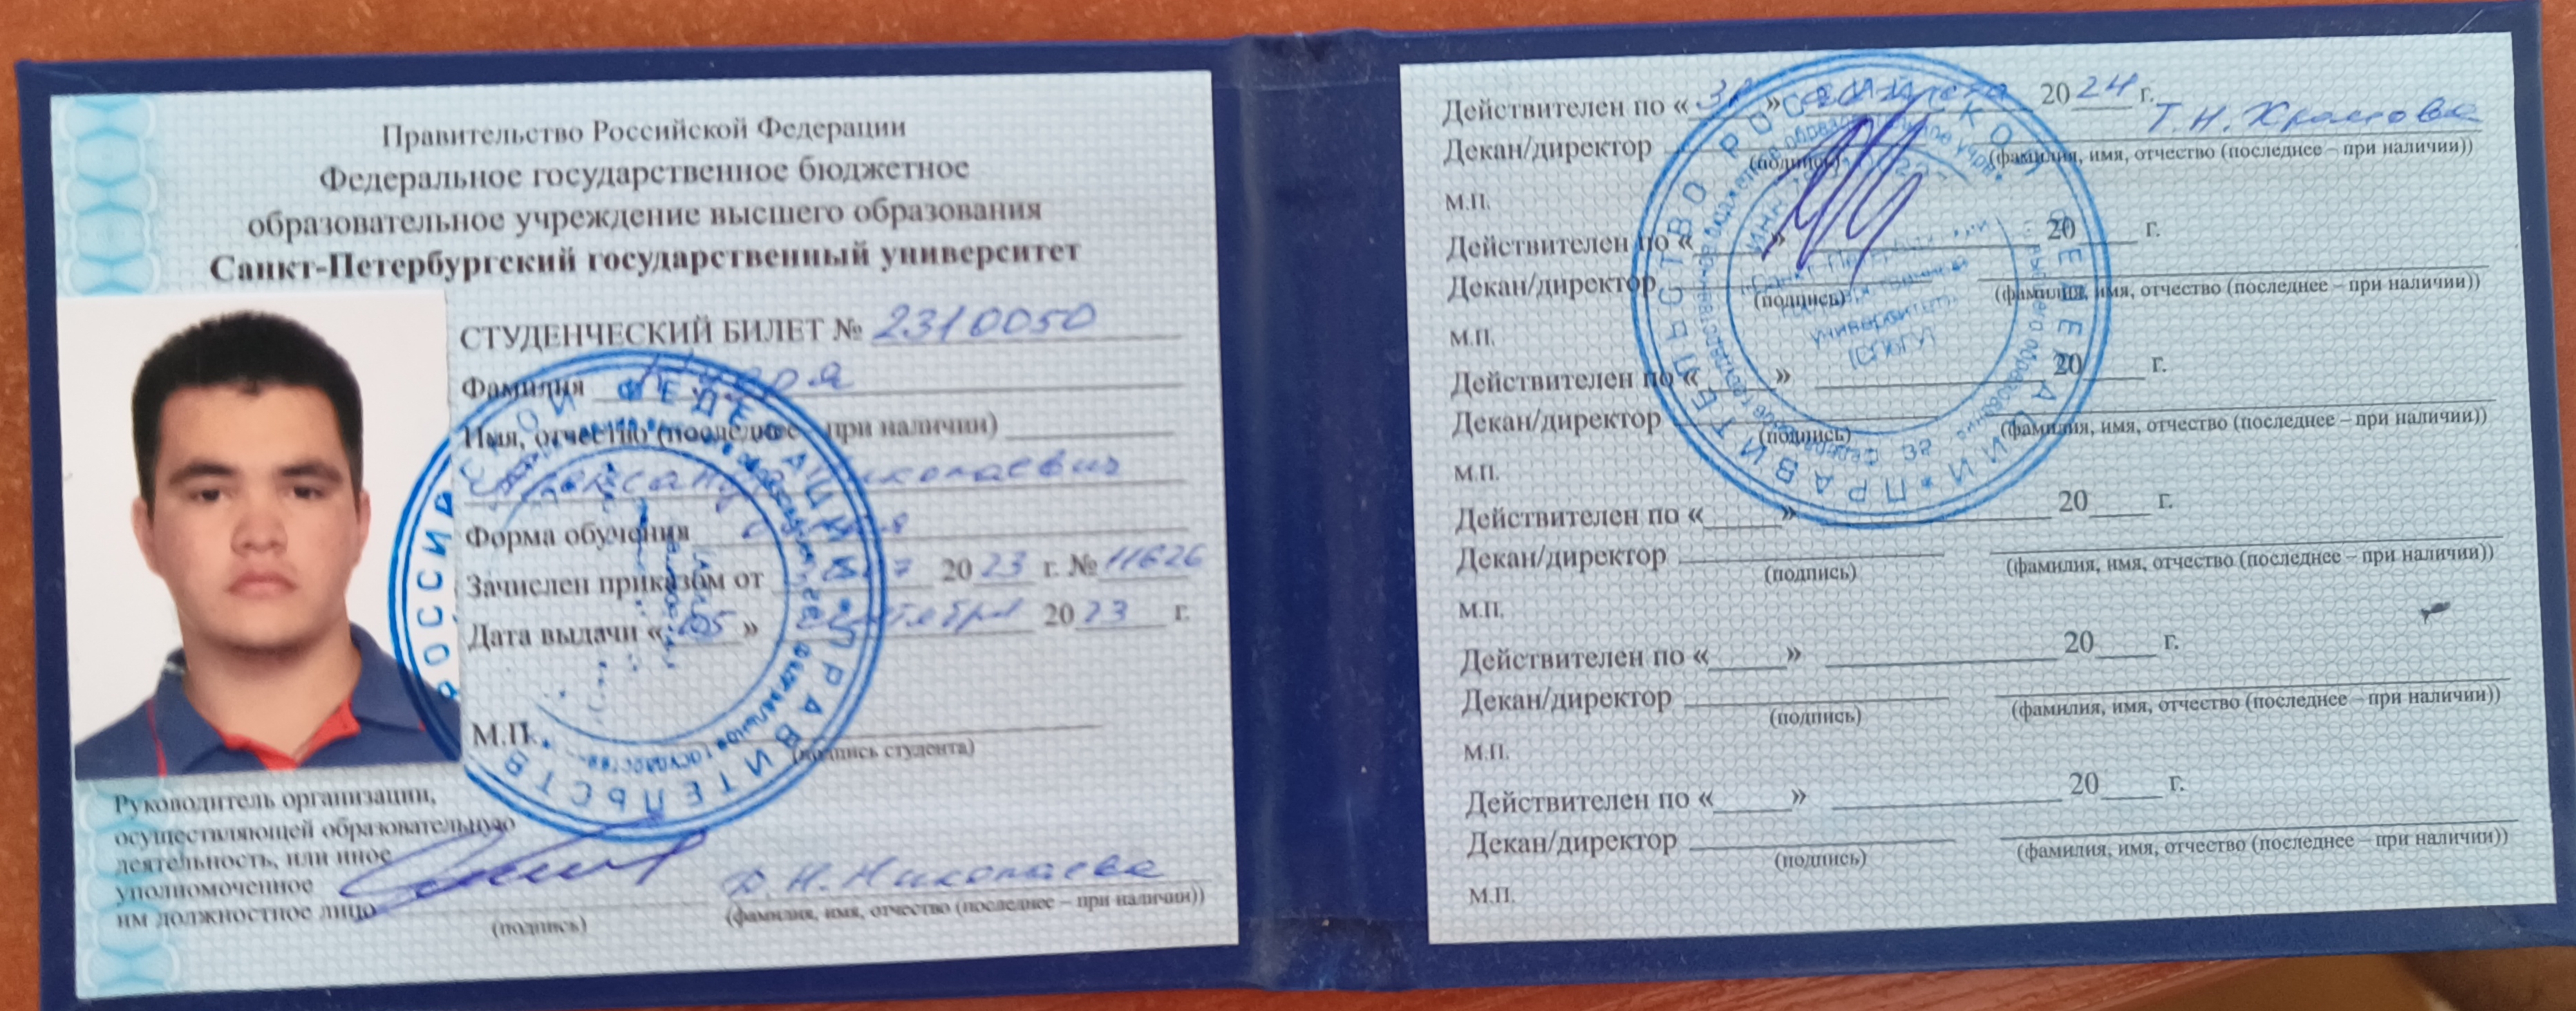 Правительство Российской Федерации
Федеральное государственное бюджетное
образовательное учреждение высшего образования
Санкт-Петербургский государственный университет
СТУДЕНЧЕСКИЙ БИЛЕТ № 2310050
Фамилия
Имя, отчество (последнее – при наличии)
Николаевич
Форма обучения
Зачислен приказом от 2023 г. № 11626
Дата выдачи «05» сентября 2023 г.
М.П.
(подпись студента)
Руководитель организации,
осуществляющей образовательную
деятельность, или иное
уполномоченное
им должностное лицо
Николаева
(подпись) (фамилия, имя, отчество (последнее – при наличии))
РОССИЙСКОЙ ФЕДЕРАЦИИ * ПРАВИТЕЛЬСТВО
Действителен по « » 2024 г.
Декан/директор Т.Н.
(подпись) (фамилия, имя, отчество (последнее – при наличии))
М.П.
Действителен по «_____» 20____ г.
Декан/директор
(подпись) (фамилия, имя, отчество (последнее – при наличии))
М.П.
Действителен по «_____» 20____ г.
Декан/директор
(подпись) (фамилия, имя, отчество (последнее – при наличии))
М.П.
Действителен по «_____» 20____ г.
Декан/директор
(подпись) (фамилия, имя, отчество (последнее – при наличии))
М.П.
Действителен по «_____» 20____ г.
Декан/директор
(подпись) (фамилия, имя, отчество (последнее – при наличии))
М.П.
Действителен по «_____» 20____ г.
Декан/директор
(подпись) (фамилия, имя, отчество (последнее – при наличии))
М.П.
ПРАВИТЕЛЬСТВО РОССИЙСКОЙ ФЕДЕРАЦИИ *
Санкт-Петербургский
государственный
университет
(СПбГУ)